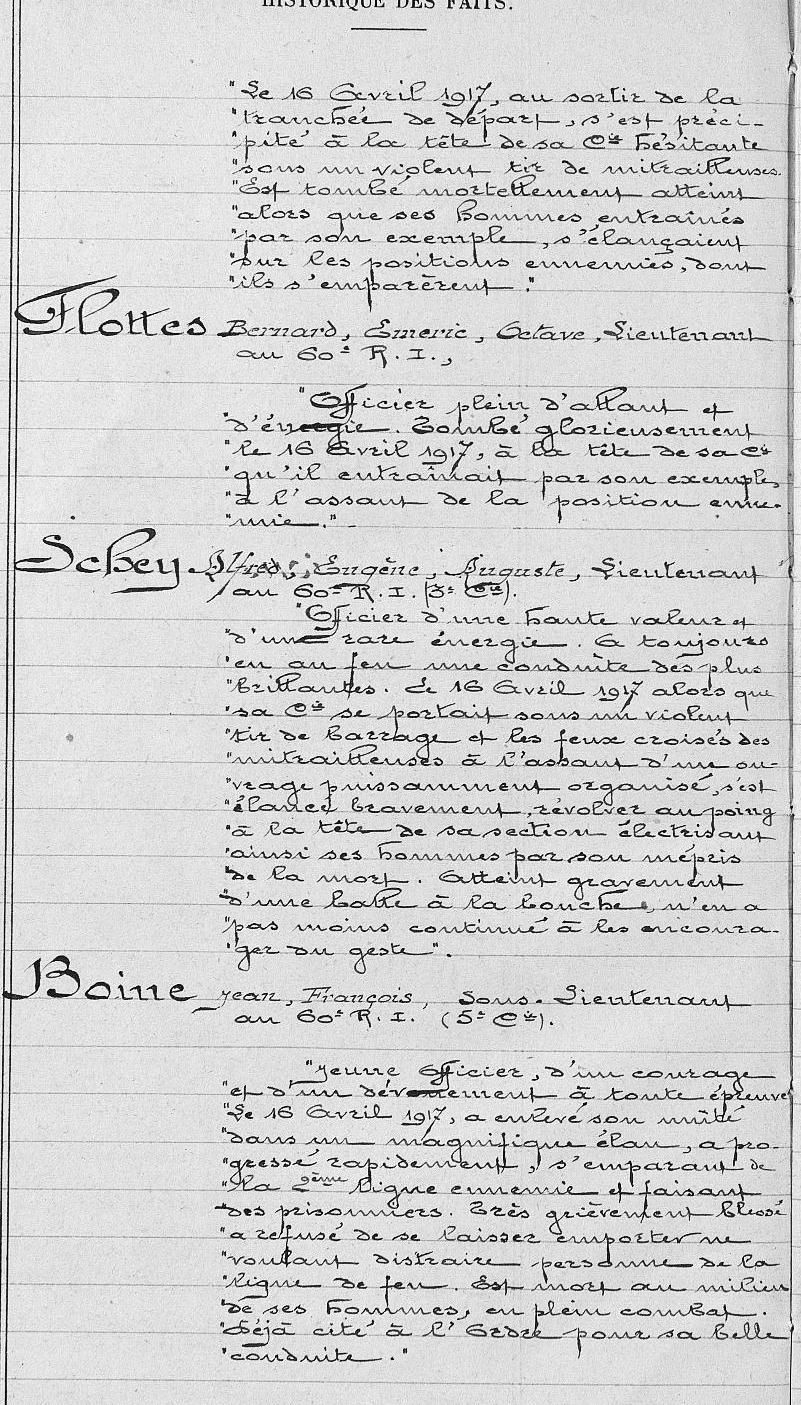 HISTORIQUE DES FAITS.
"Le 16 Avril 1917, au sortir de la
"tranchée de départ, s'est préci-
"pité à la tête de sa Cie hésitante
"sous un violent tir de mitrailleuses.
"Est tombé mortellement atteint
"alors que ses hommes entraînés
"par son exemple, s'élançaient
"sur les positions ennemies, dont
"ils s'emparèrent."
Flottes Bernard, Emeric, Octave, Lieutenant
au 60e R.I.,
"Officier plein d'allant et
"d'énergie. Tombé glorieusement
"le 16 Avril 1917, à la tête de sa Cie
"qu'il entraînait par son exemple,
"à l'assaut de la position enne-
"mie."
Schey Alfred, Eugène, Auguste, Lieutenant
au 60e R.I. (3e Cie).
"Officier d'une haute valeur et
"d'une rare énergie. A toujours
"eu au feu une conduite des plus
"brillantes. Le 16 Avril 1917 alors que
"sa Cie se portait sous un violent
"tir de barrage et les feux croisés des
"mitrailleuses à l'assaut d'un ou-
"vrage puissamment organisé, s'est
"élancé bravement, révolver au poing
"à la tête de sa section électrisant
"ainsi ses hommes par son mépris
"de la mort. Atteint gravement
"d'une balle à la bouche, n'en a
"pas moins continué à les encoura-
"ger du geste".
Boine Jean, François, Sous-Lieutenant
au 60e R.I. (5e Cie).
"Jeune Officier, d'un courage
"et d'un dévouement à toute épreuve
"Le 16 Avril 1917, a enlevé son unité
"dans un magnifique élan, a pro-
"gressé rapidement, s'emparant de
"la 2ème ligne ennemie et faisant
"des prisonniers. Très grièvement blessé
"a refusé de se laisser emporter ne
"voulant distraire personne de la
"ligne de feu. Est mort au milieu
"de ses hommes, en plein combat.
"Déjà cité à l'Ordre pour sa belle
"conduite."